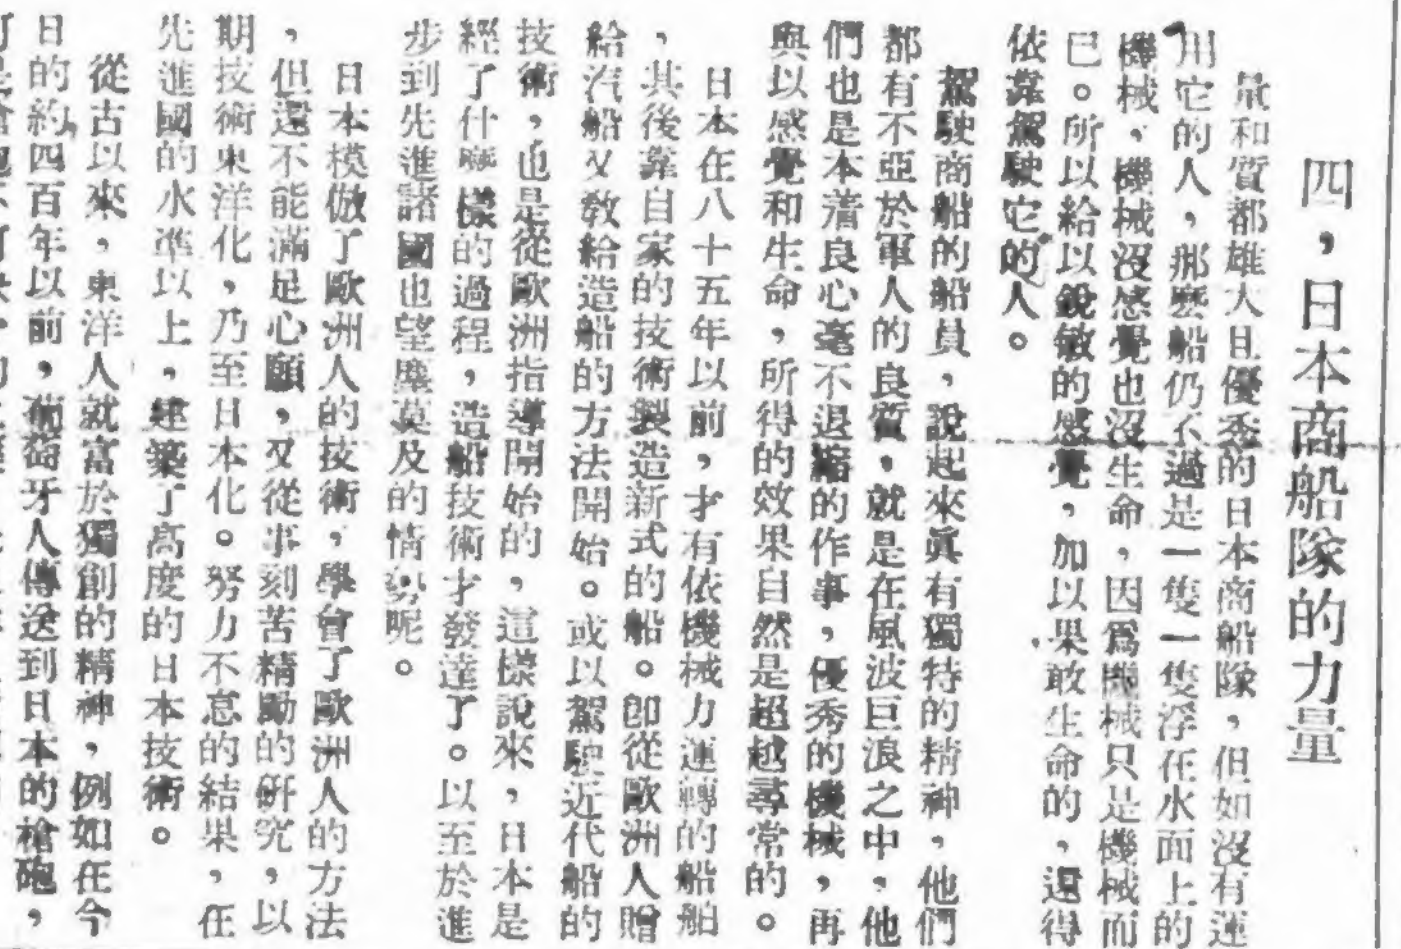 四，日本商船隊的力量
量和質都雄大且優秀的日本商船隊，但如沒有運
用它的人，那麼船仍不過是一隻一隻浮在水面上的
機械，機械沒感覺也沒生命，因爲機械只是機械而
已。所以給以銳敏的感覺，加以果敢生命的，還得
依靠駕駛它的人。
駕駛商船的船員，說起來眞有獨特的精神，他們
都有不亞於軍人的良質，就是在風波巨浪之中，他
們也是本着良心毫不退縮的作事，優秀的機械，再
與以感覺和生命，所得的效果自然是超越尋常的。
日本在八十五年以前，才有依機械力運轉的船舶
，其後靠自家的技術製造新式的船。卽從歐洲人贈
給汽船又敎給造船的方法開始。或以駕駛近代船的
技術，也是從歐洲指導開始的，這樣說來，日本是
經了什麼樣的過程，造船技術才發達了。以至於進
步到先進諸國也望塵莫及的情勢呢。
日本模倣了歐洲人的技術，學會了歐洲人的方法
，但還不能滿足心願，又從事刻苦精勵的硏究，以
期技術東洋化，乃至日本化。努力不怠的結果，在
先進國的水準以上，建築了高度的日本技術。
從古以來，東洋人就富於獨創的精神，例如在今
日的約四百年以前，葡萄牙人傳送到日本的槍砲，